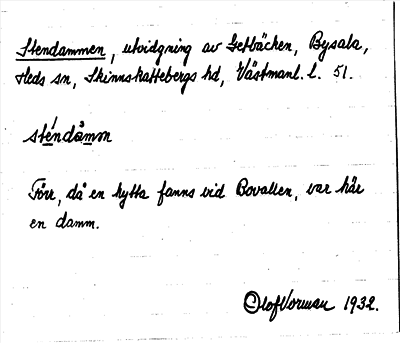 Stendammen, utvidgning av Getbäcken, Bysala,
Heds sn, Skinnskattebergs hd, Västmanl. l. 51.
sténdåmɷn
Förr, då en hytta fanns vid Bovallen, var här
en damm.
Olof Vorman 1932.